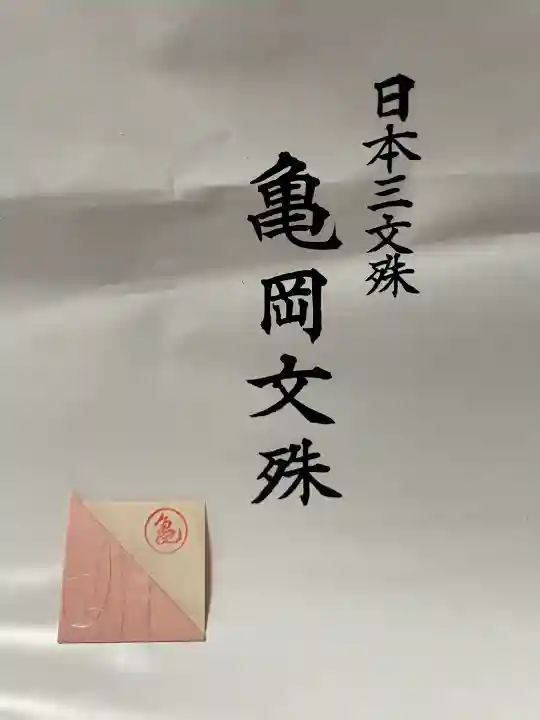 日本三文殊
亀岡文殊
亀